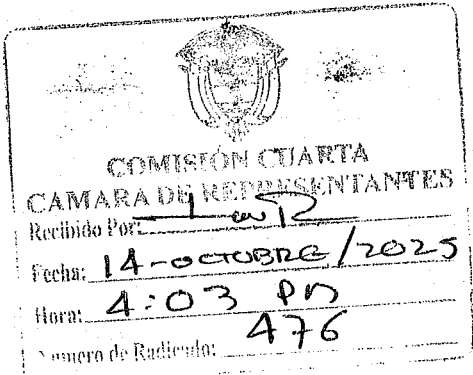 COMISIÓN CUARTA
CAMARA DE REPRESENTANTES
Recibido Por:
Fecha: 14-OCTUBRE/2025
Hora: 4:03 PM
Numero de Radicado: 476